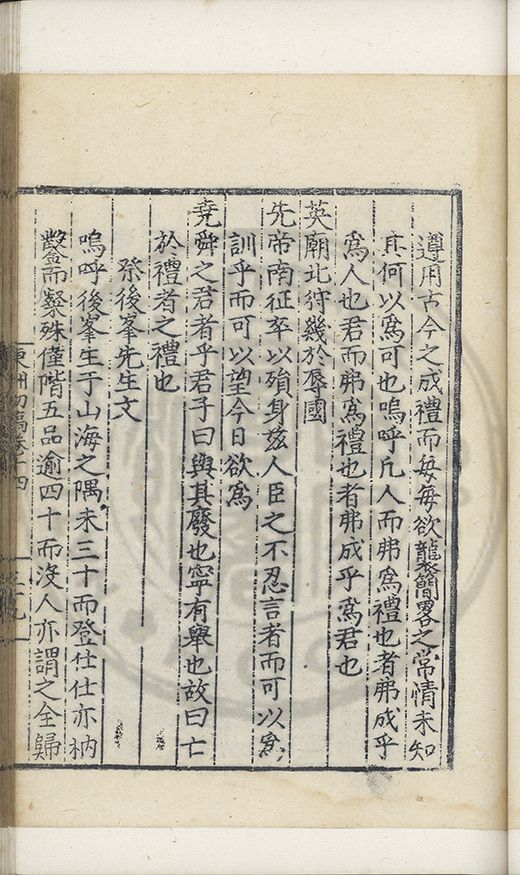 遵用古今之成禮而毎毎欲襲簡畧之常情未知
其何以爲可也嗚呼凡人而弗爲禮也者弗成乎
爲人也君而弗爲禮也者弗成乎爲君也
英廟北狩幾於辱國
先帝南征卒以殞身茲人臣之不忍言者而可以爲
訓乎而可以望今日欲爲
堯舜之君者乎君子曰與其廢也寧有舉也故曰亡
於禮者之禮也
祭後峯先生文
嗚呼後峯生于山海之隅未三十而登仕仕亦枘
鑿而齟殊僅階五品逾四十而沒人亦謂之全歸
東洲初稿卷十四
三十九